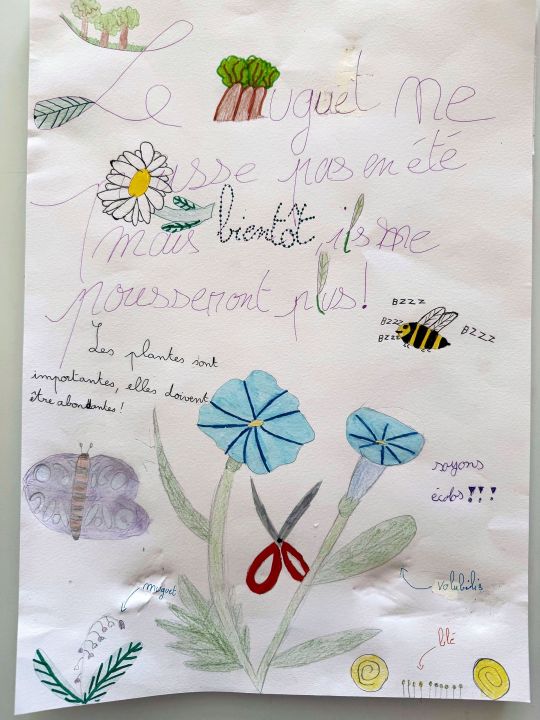 Le muguet ne
pousse pas en été
mais bientôt, ils ne
pousseront plus!
BZZZ
BZZZ
BZZZ
BZZZ
Les plantes sont
importantes, elles doivent
être abondantes !
soyons
écolos !!!
muguet
volubilis
blé